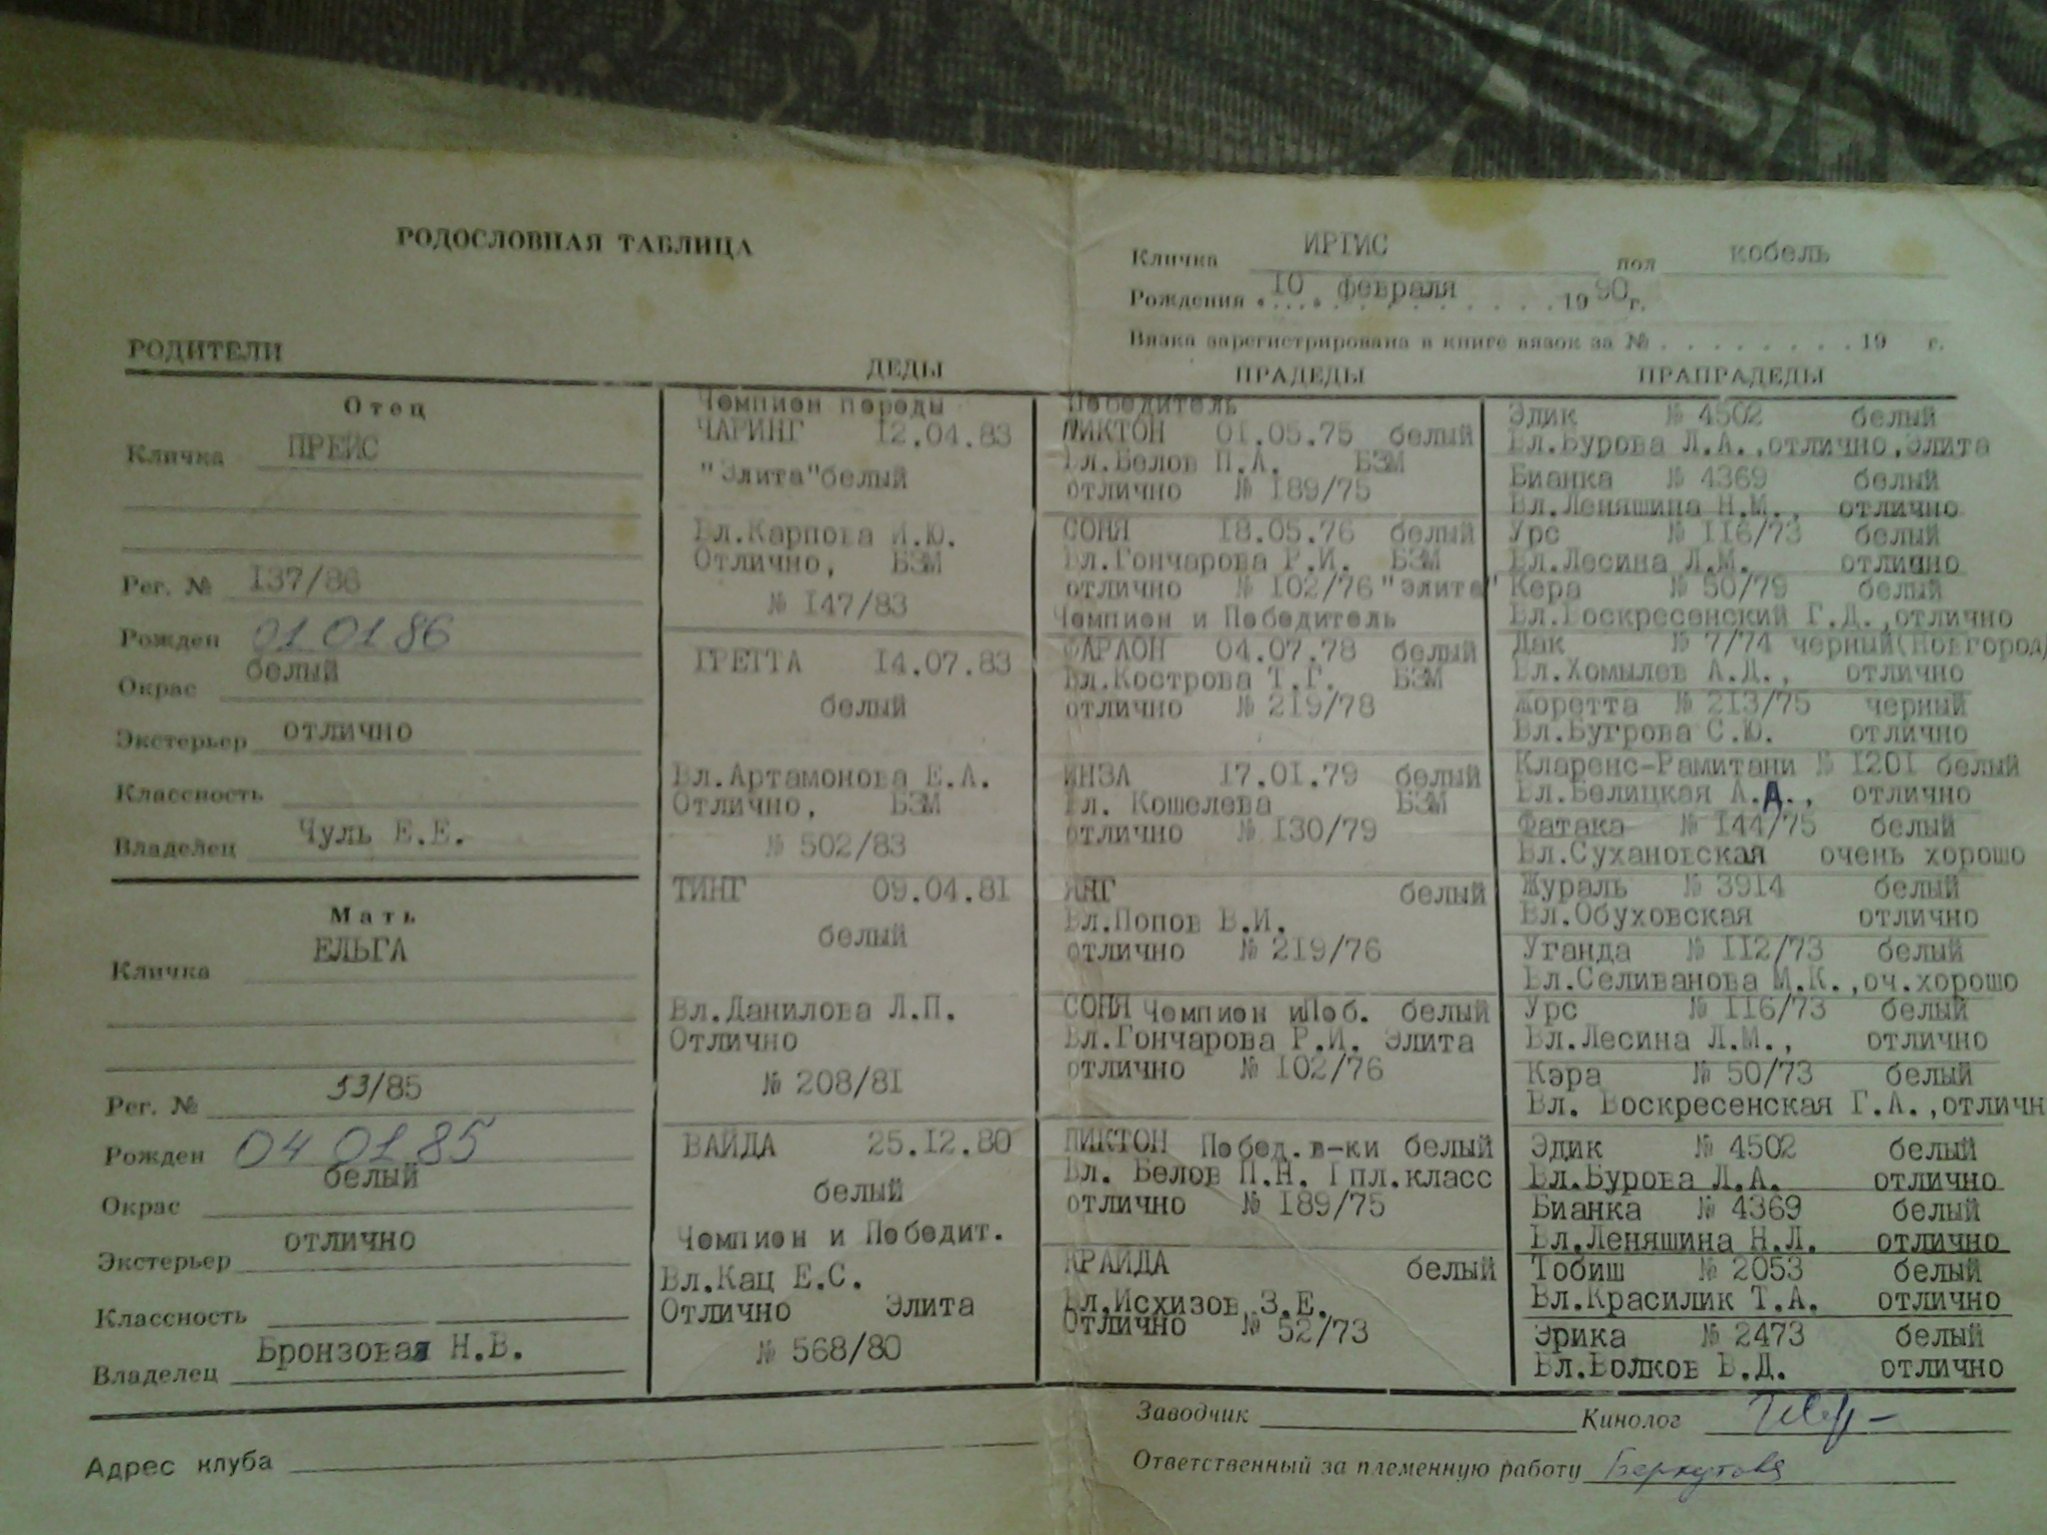 РОДОСЛОВНАЯ ТАБЛИЦА
Кличка ИРГИС пол кобель
Рождения 10 февраля 1990г.
Вязка зарегистрирована в книге вязок за № 19 г.
РОДИТЕЛИ
ДЕДЫ
ПРАДЕДЫ
ПРАПРАДЕДЫ
Отец
Кличка ПРЕЙС
Рег. № 137/86
Рожден 01 01 86
Окрас белый
Экстерьер отлично
Классность
Владелец Чуль Е.Е.
Мать
Кличка ЕЛЬГА
Рег. № 33/85
Рожден 04 01 85
Окрас белый
Экстерьер отлично
Классность
Владелец Бронзовая Н.В.
Чемпион породы
ЧАРИНГ 12.04.83
"Элита" белый
Вл.Карпова И.Ю.
Отлично, БЗМ
№ 147/83
ГРЕТТА 14.07.83
белый
Вл.Артамонова Е.А.
Отлично, БЗМ
№ 502/83
ТИНГ 09.04.81
белый
Вл.Данилова Л.П.
Отлично
№ 208/81
ВАЙДА 25.12.80
белый
Чемпион и Победит.
Вл.Кац Е.С.
Отлично Элита
№ 568/80
Победитель
ПИКТОН 01.05.75 белый
Вл.Белов П.А. БЗМ
отлично № 189/75
СОНЯ 18.05.76 белый
Вл.Гончарова Р.И. БЗМ
отлично № 102/76 "Элита"
Чемпион и Победитель
ФАРЛОН 04.07.78 белый
Вл.Кострова Т.Г. БЗМ
отлично № 219/78
ИНЗА 17.01.79 белый
Вл. Кошелева БЗМ
отлично № 130/79
ЯНГ белый
Вл.Попов В.И.
отлично № 219/76
СОНЯ Чемпион и Поб. белый
Вл.Гончарова Р.И. Элита
отлично № 102/76
ПИКТОН Побед.в-ки белый
Вл. Белов П.Н. I пл.класс
отлично № 189/75
КРАЙДА белый
Вл.Исхизов З.Е.
Отлично № 52/73
Эдик № 4502 белый
Вл.Бурова Л.А.,отлично,Элита
Бианка № 4369 белый
Вл.Леняшина Н.М., отлично
Урс № 116/73 белый
Вл.Лесина Л.М. отлично
Кера № 50/79 белый
Вл.Воскресенский Г.Д.,отлично
Дак № 7/74 черный(Новгород)
Вл.Хомылев А.Д., отлично
Жоретта № 213/75 черный
Вл.Бугрова С.Ю. отлично
Кларенс-Рамитани № 1201 белый
Вл.Белицкая А.Д., отлично
Фатака № 144/75 белый
Вл.Сухановская очень хорошо
Жураль № 3914 белый
Вл.Обуховская отлично
Уганда № 112/73 белый
Вл.Селиванова М.К.,оч.хорошо
Урс № 116/73 белый
Вл.Лесина Л.М., отлично
Кэра № 50/73 белый
Вл. Воскресенская Г.А.,отличн
Эдик № 4502 белый
Вл.Бурова Л.А. отлично
Бианка № 4369 белый
Вл.Леняшина Н.Л. отлично
Тобиш № 2053 белый
Вл.Красилик Т.А. отлично
Эрика № 2473 белый
Вл.Волков В.Д. отлично
Заводчик Кинолог
Адрес клуба
Ответственный за племенную работу Беркутова